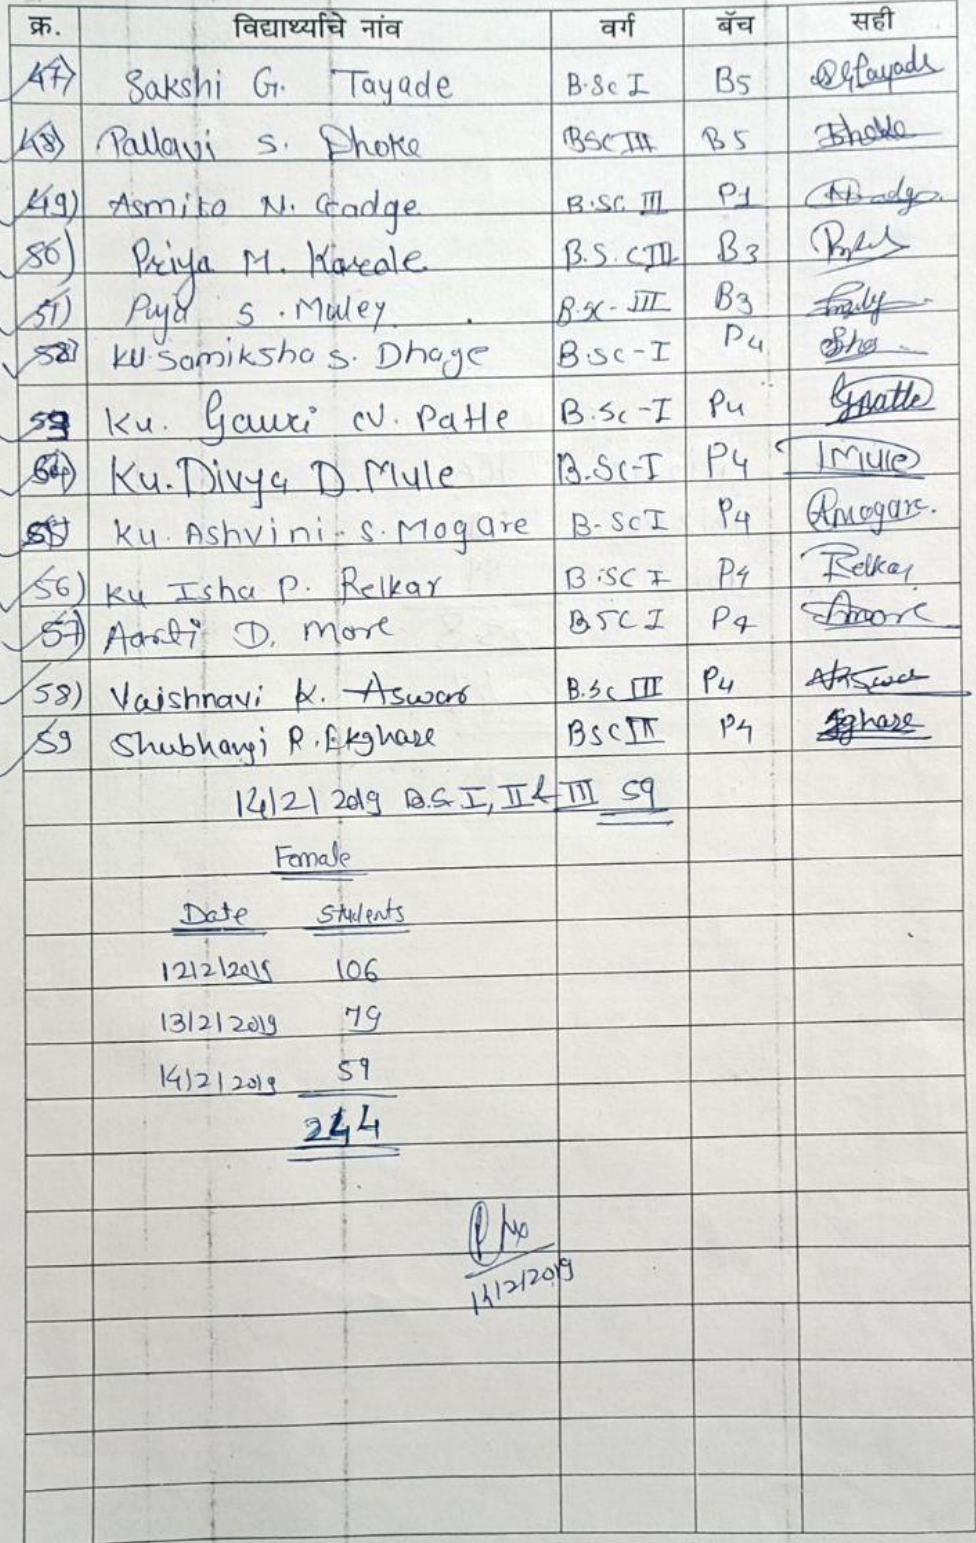 क्र. विद्यार्थ्याचे नांव वर्ग बॅच सही
47) Sakshi G. Tayade B.Sc I B5 SGTayade
48) Pallavi S. Dhoke BSC III B5 Dhoke
49) Asmita N. Gadge B.SC. III P1
50) Priya M. Karale B.S.C III B3
51) Puja S. Muley B.sc-III B3
52) KU. Samiksha S. Dhage B.sc-I P4
53 Ku. Gauri N. Patte B.Sc-I P4 Gpatte
54) Ku. Divya D. Mule B.Sc-I P4 Mule
55) Ku. Ashvini S. Mogare B-Sc I P4 Amogare.
56) Ku Isha P. Relkar B.SC I P4 Relkar
57) Aarti D. More BSC I P4 Amore
58) Vaishnavi K. Aswar B.Sc III P4
59 Shubhangi R. Ekghare BSC III P4
14/2/2019 B.Sc I, II & III 59
Female
Date Students
12/2/2019 106
13/2/2019 79
14/2/2019 59
244
14/2/2019